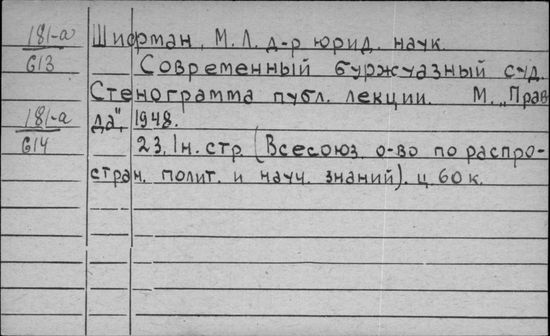 181-а Шифман, М.Л. д-р юрид. наук.
613 Современный буржуазный суд.
Стенограмма публ. лекции. М. „Прав
181-а да", 1948.
614 23, 1н. стр. (Всесоюз. о-во по распро-
стран. полит. и науч. знаний). ц. 60 к.